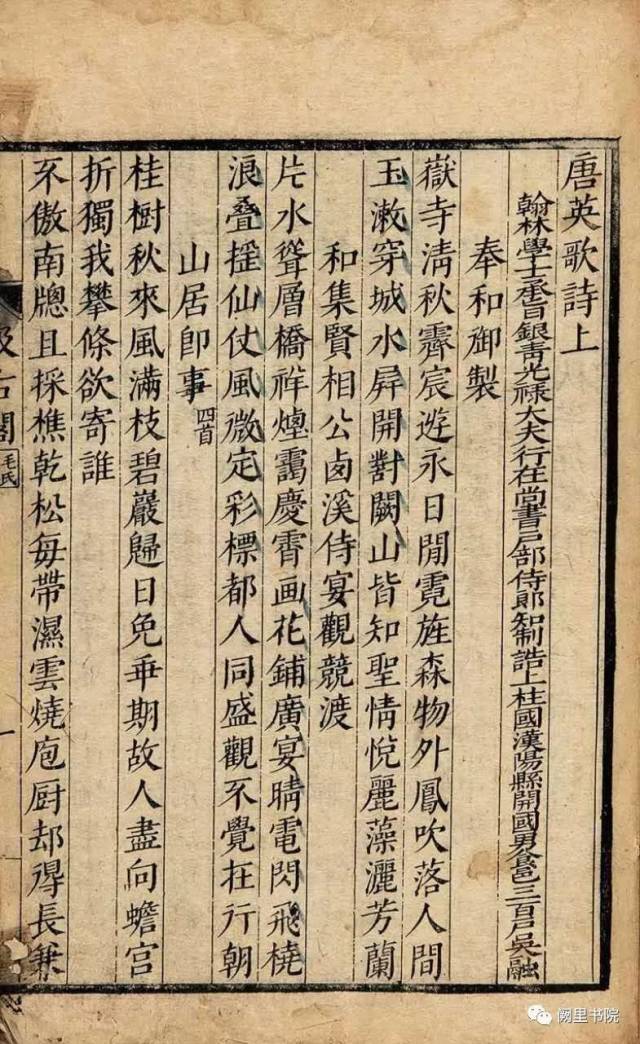 唐英歌詩上
翰林學士承旨銀青光祿大夫行在尚書戶部侍郎知制誥上柱國漢陽縣開國男食邑三百戶吳融
奉和御製
嶽寺清秋霽宸遊永日閒霓旌森物外鳳吹落人間
玉漱穿城水屏開對闕山皆知聖情悅麗藻灑芳蘭
和集賢相公西溪侍宴觀競渡
片水聳層橋祥煙靄慶霄画花鋪廣宴晴電閃飛橈
浪疊搖仙仗風微定彩標都人同盛觀不覺在行朝
山居即事 四首
桂樹秋來風滿枝碧巖歸日免乖期故人盡向蟾宮
折獨我攀條欲寄誰
不傲南牕且採樵乾松每帶濕雲燒庖厨却得長兼
汲古閣 毛氏
一
阙里书院